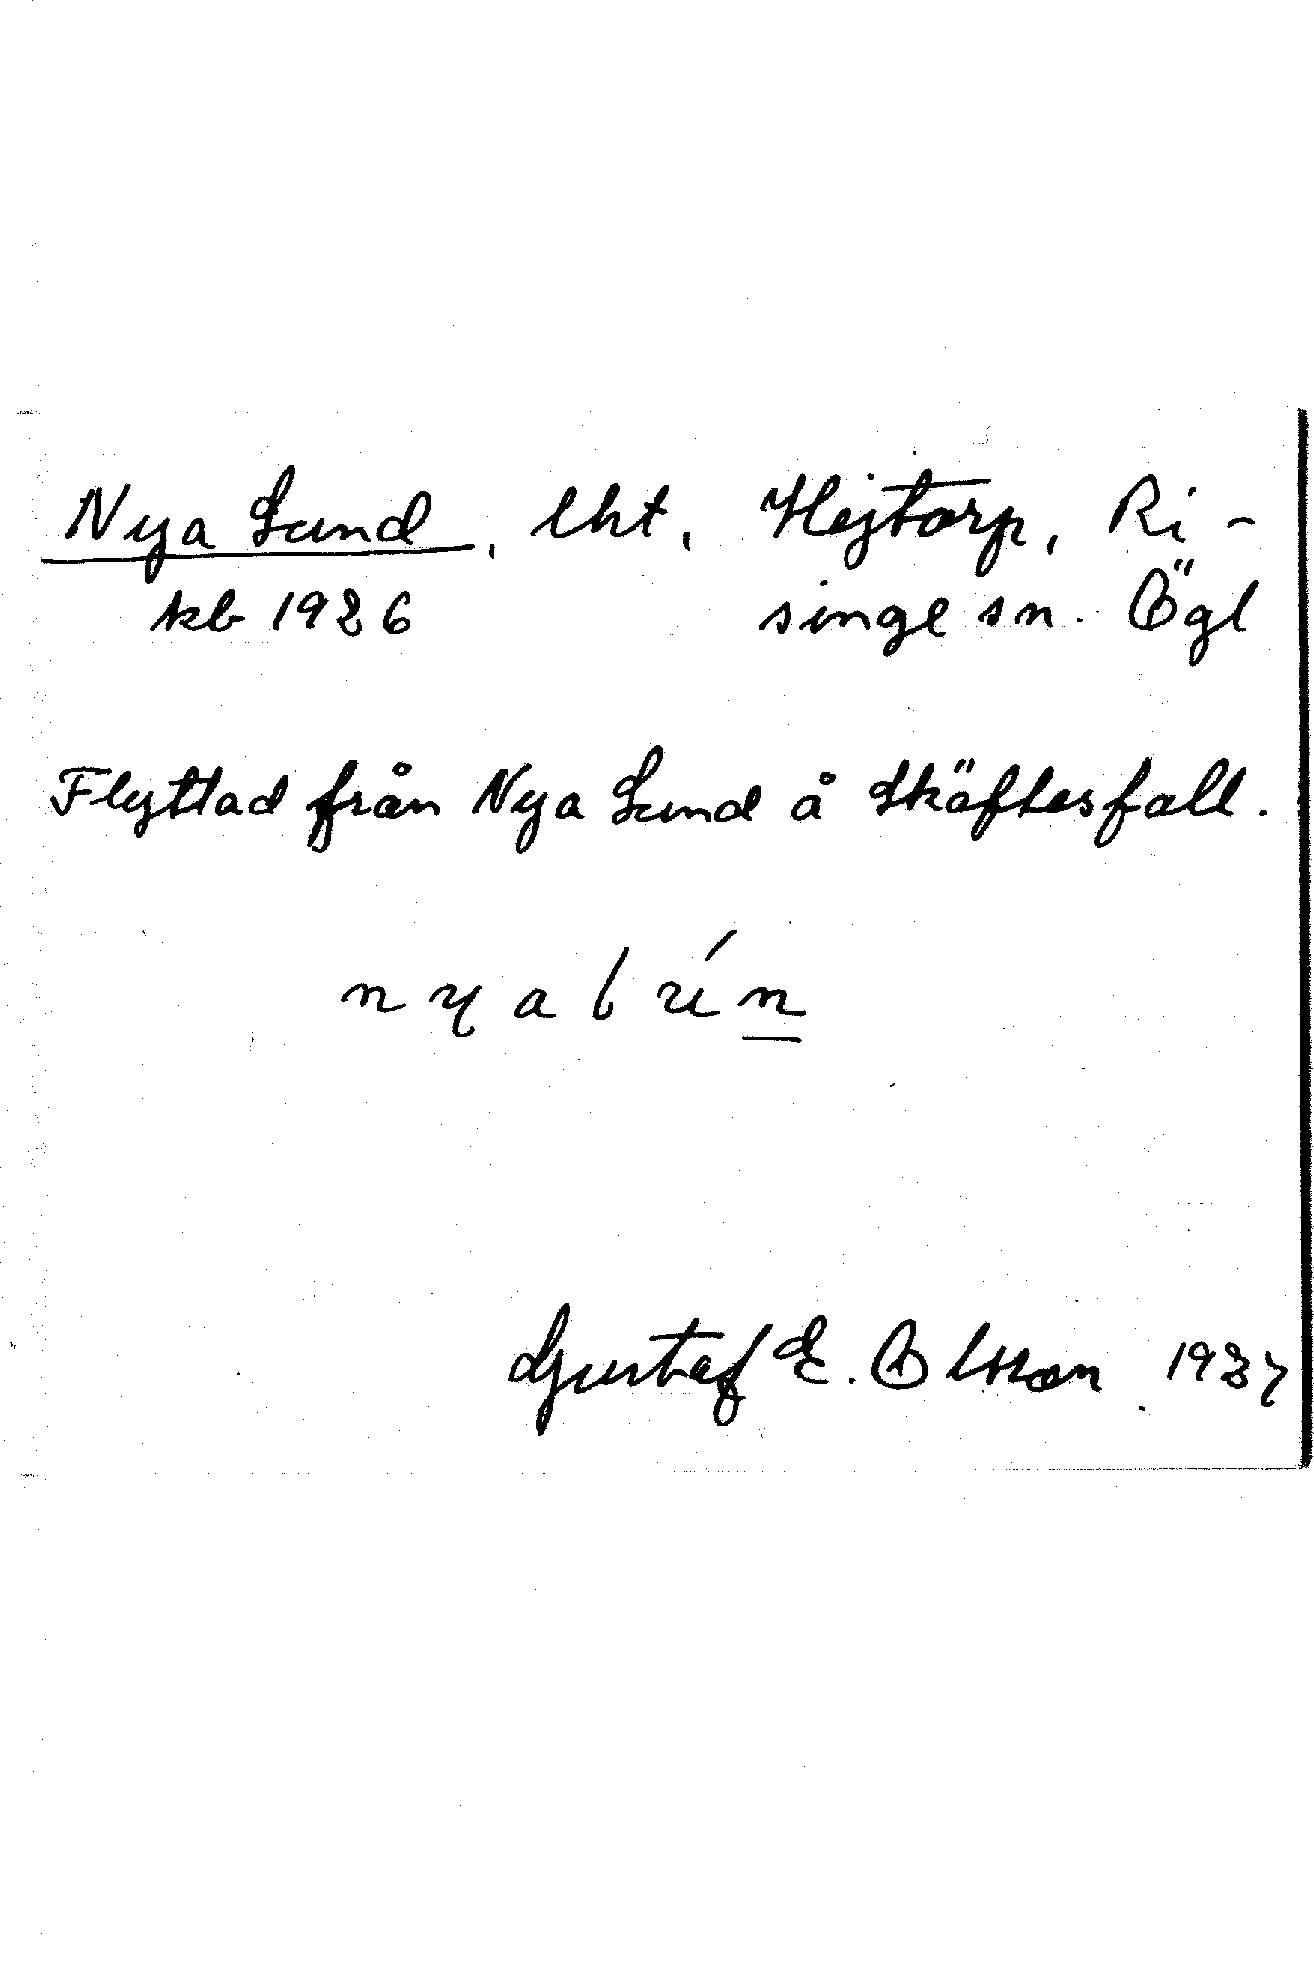 Nya Lund, lht, Hejtorp, Ri-
kb 1926 singe sn. Ögl
Flyttad från Nya Lund å Skäftesfall.
nyalún
Gustaf E. Olsson 1937